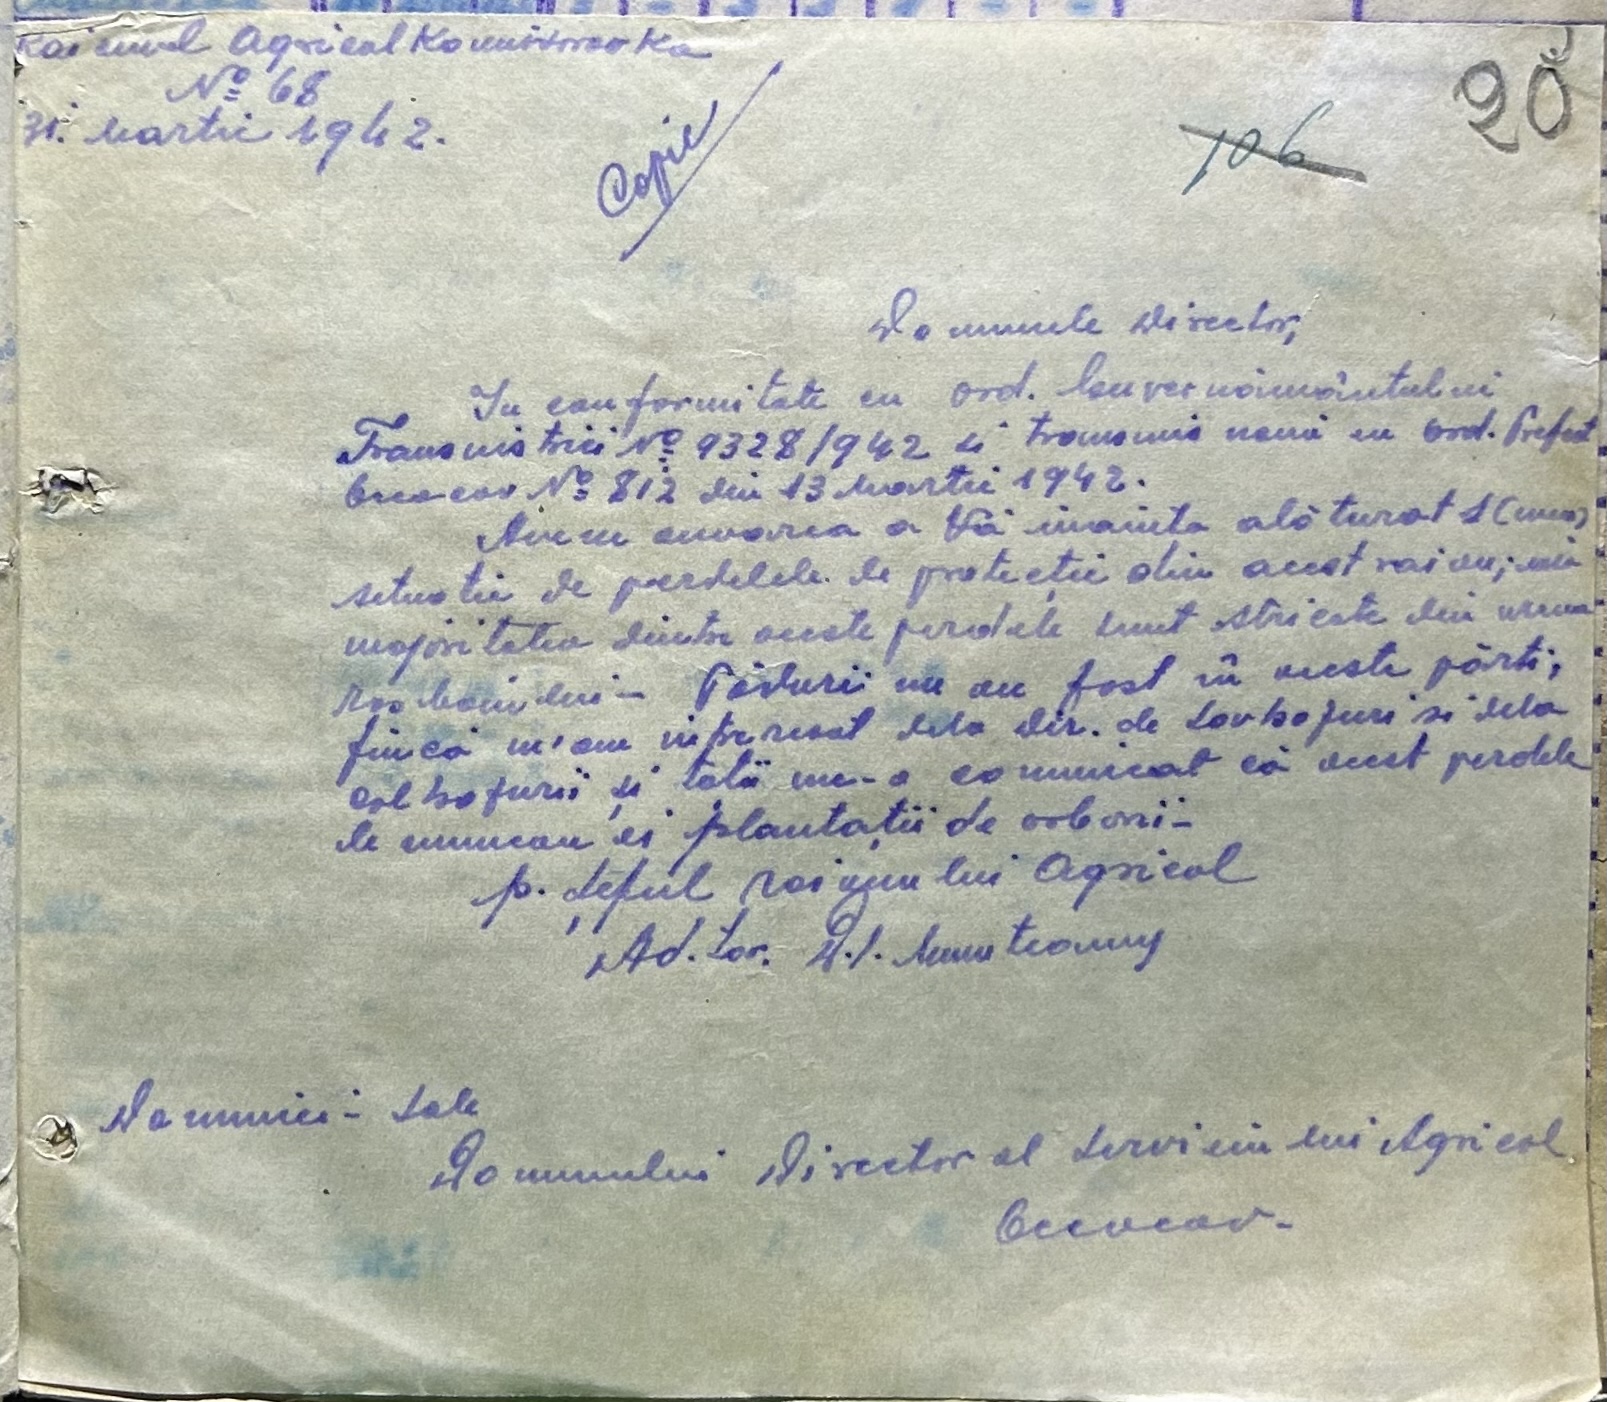 Raionul Agricol Komisarovka
No 68
31. Martie 1942.
Copie
106
20
Domnule Director,
In conformitate cu ord. Guvernământului
Transnistriei No 9328/942 si transmis nouă cu ord. Prefect
Ococov No 812 din 13 Martie 1942.
Avem onoarea a Vă inainta alăturat 1 (una)
situatie de perdelele de protecției din acest raion;
majoritatea dintre aceste perdele sunt stricate din urma
rasboiului - Pădurii nu au fost în aceste părti;
fiincă m'am interesat dela Dir. de Sovhozuri si dela
colhozurii și toții ne-a comunicat că acest perdele
le numeau ei plantații de arborii -
p. Șeful raionului Agricol
Ad. Lor. D.I. Munteanu
Domniei - Sale
Domnului Director al Serviciului Agricol
Ococov -